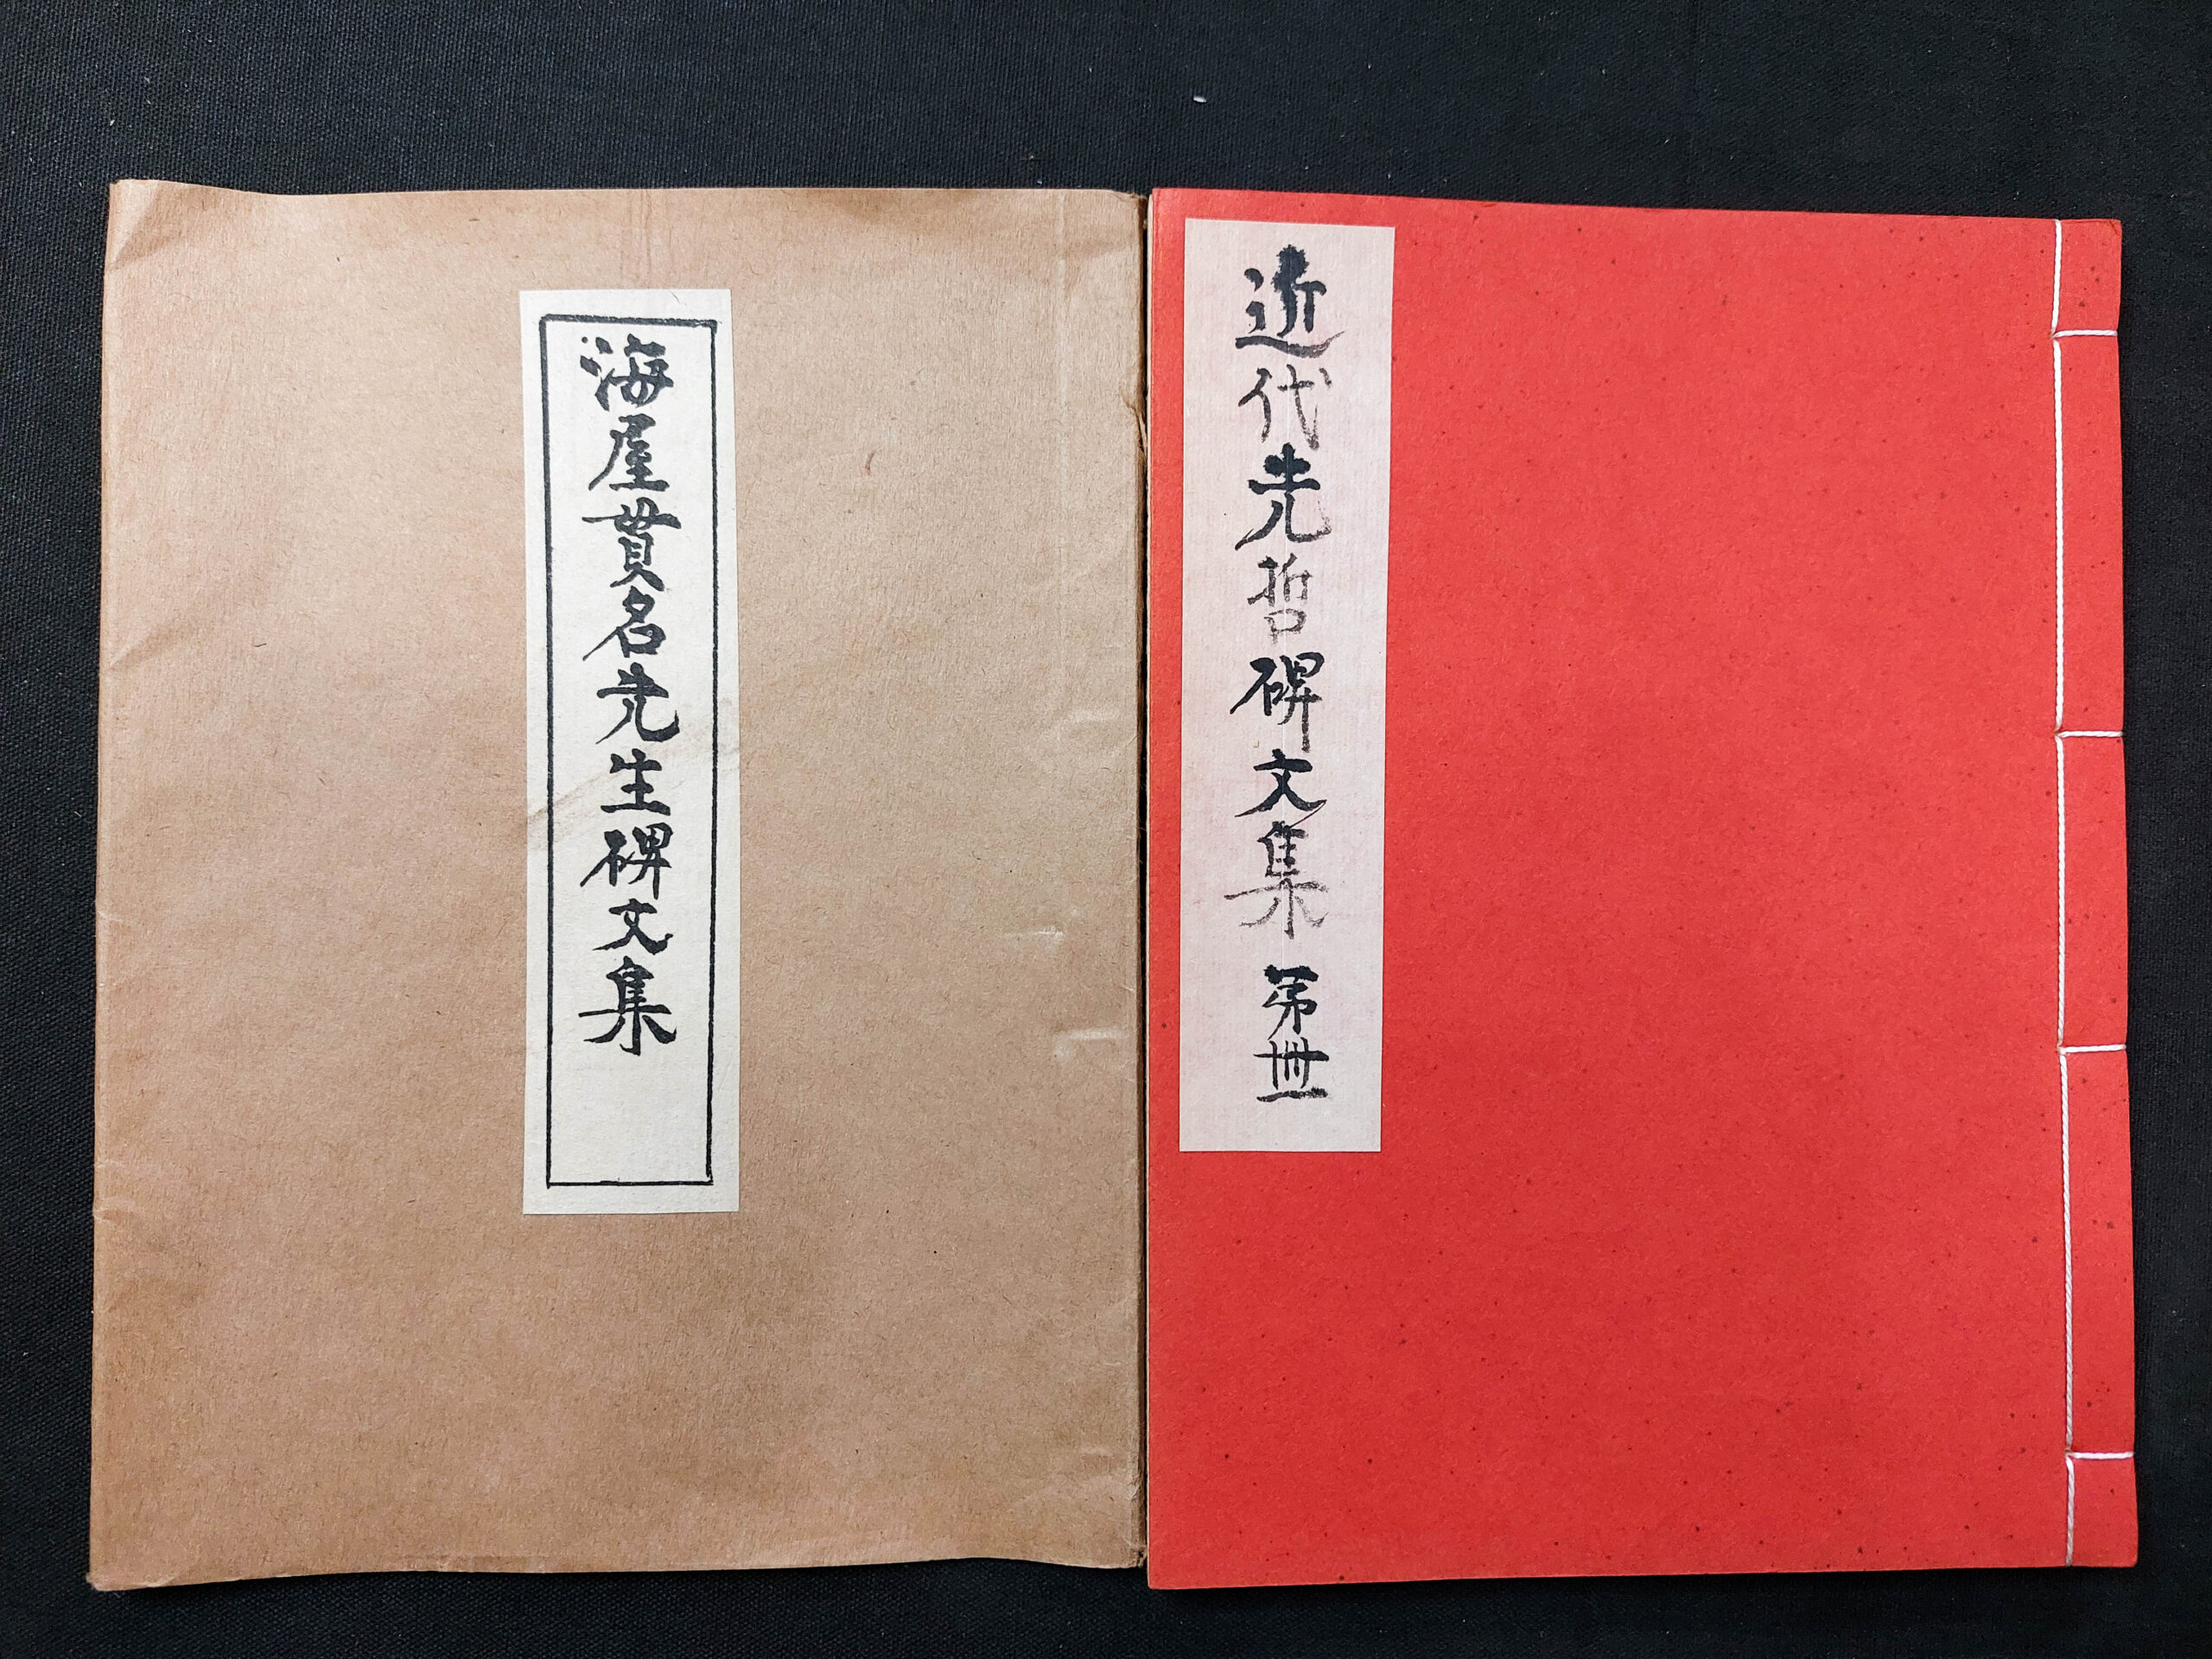 近代先哲碑文集 第卌一
海屋貫名先生碑文集